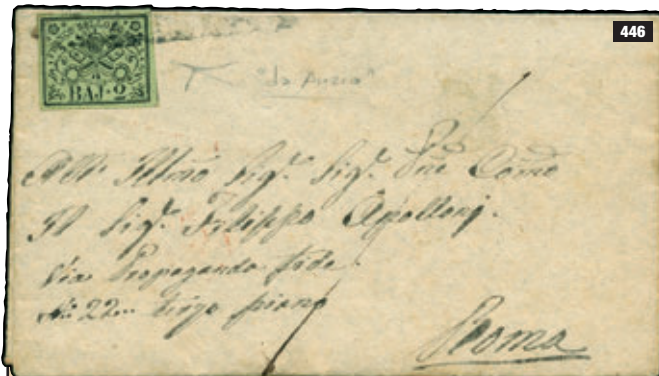 446
FRANCO BOLLO
BAJ. 2
"da Anzio"
All' Illmo Sig. Sig. Pne Colmo
Il Sig. Filippo Apolloni.
Via Propaganda fide.
No 22 terzo piano
Roma